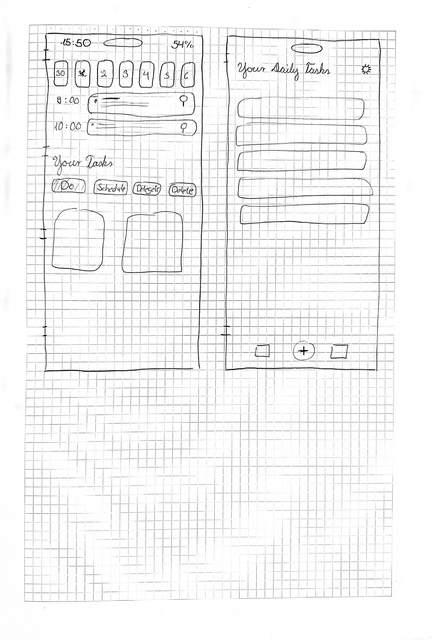 15:50 54%
30 31 2 3 4 5 6
8:00
10:00
Your Tasks
Do Schedule Delegate Delete
Your Daily Tasks
+